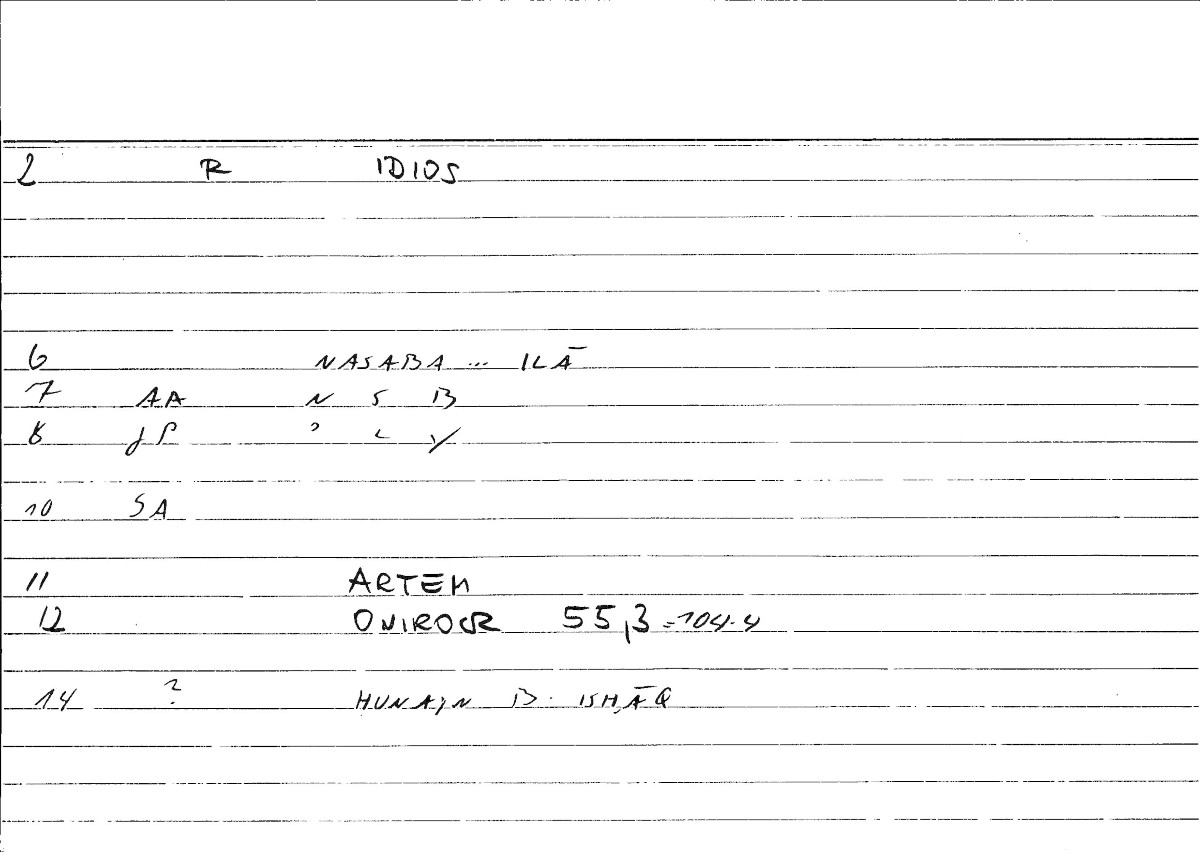 2 R IDIOS
6 NASABA ... ILĀ
7 AA N S B
8 JP
10 SA
11 ARTEM
12 ONIROCR 55,3 = 104.4
14 ? HUNAYN B. ISḤĀQ